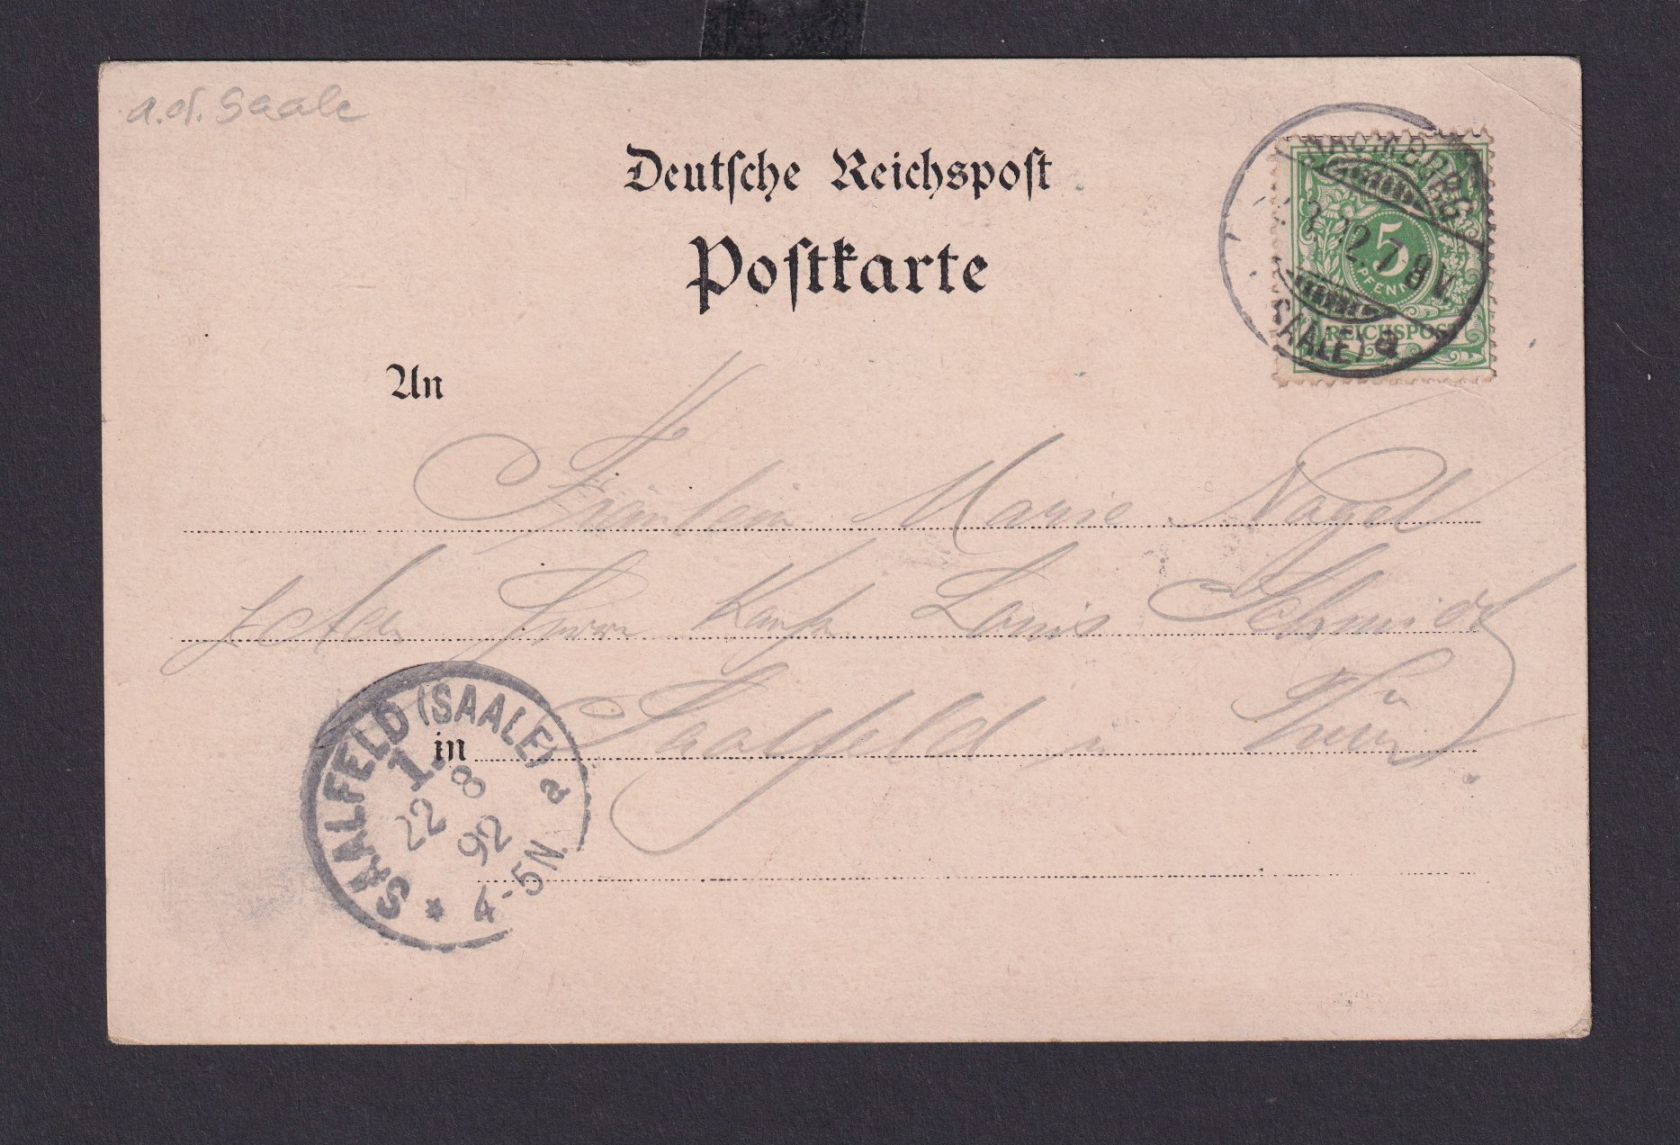 a.d. Saale
Deutsche Reichspost
Postkarte
NAUMBURG
92. 7-8V.
(SAALE) a
5
PFENNIG
REICHSPOST
An
Fräulein Marie Nagel
Herrn Kaufm Louis Schmidt
in Saalfeld in Thür.
SAALFELD (SAALE) a
1.
22 8
92
* 4-5N.